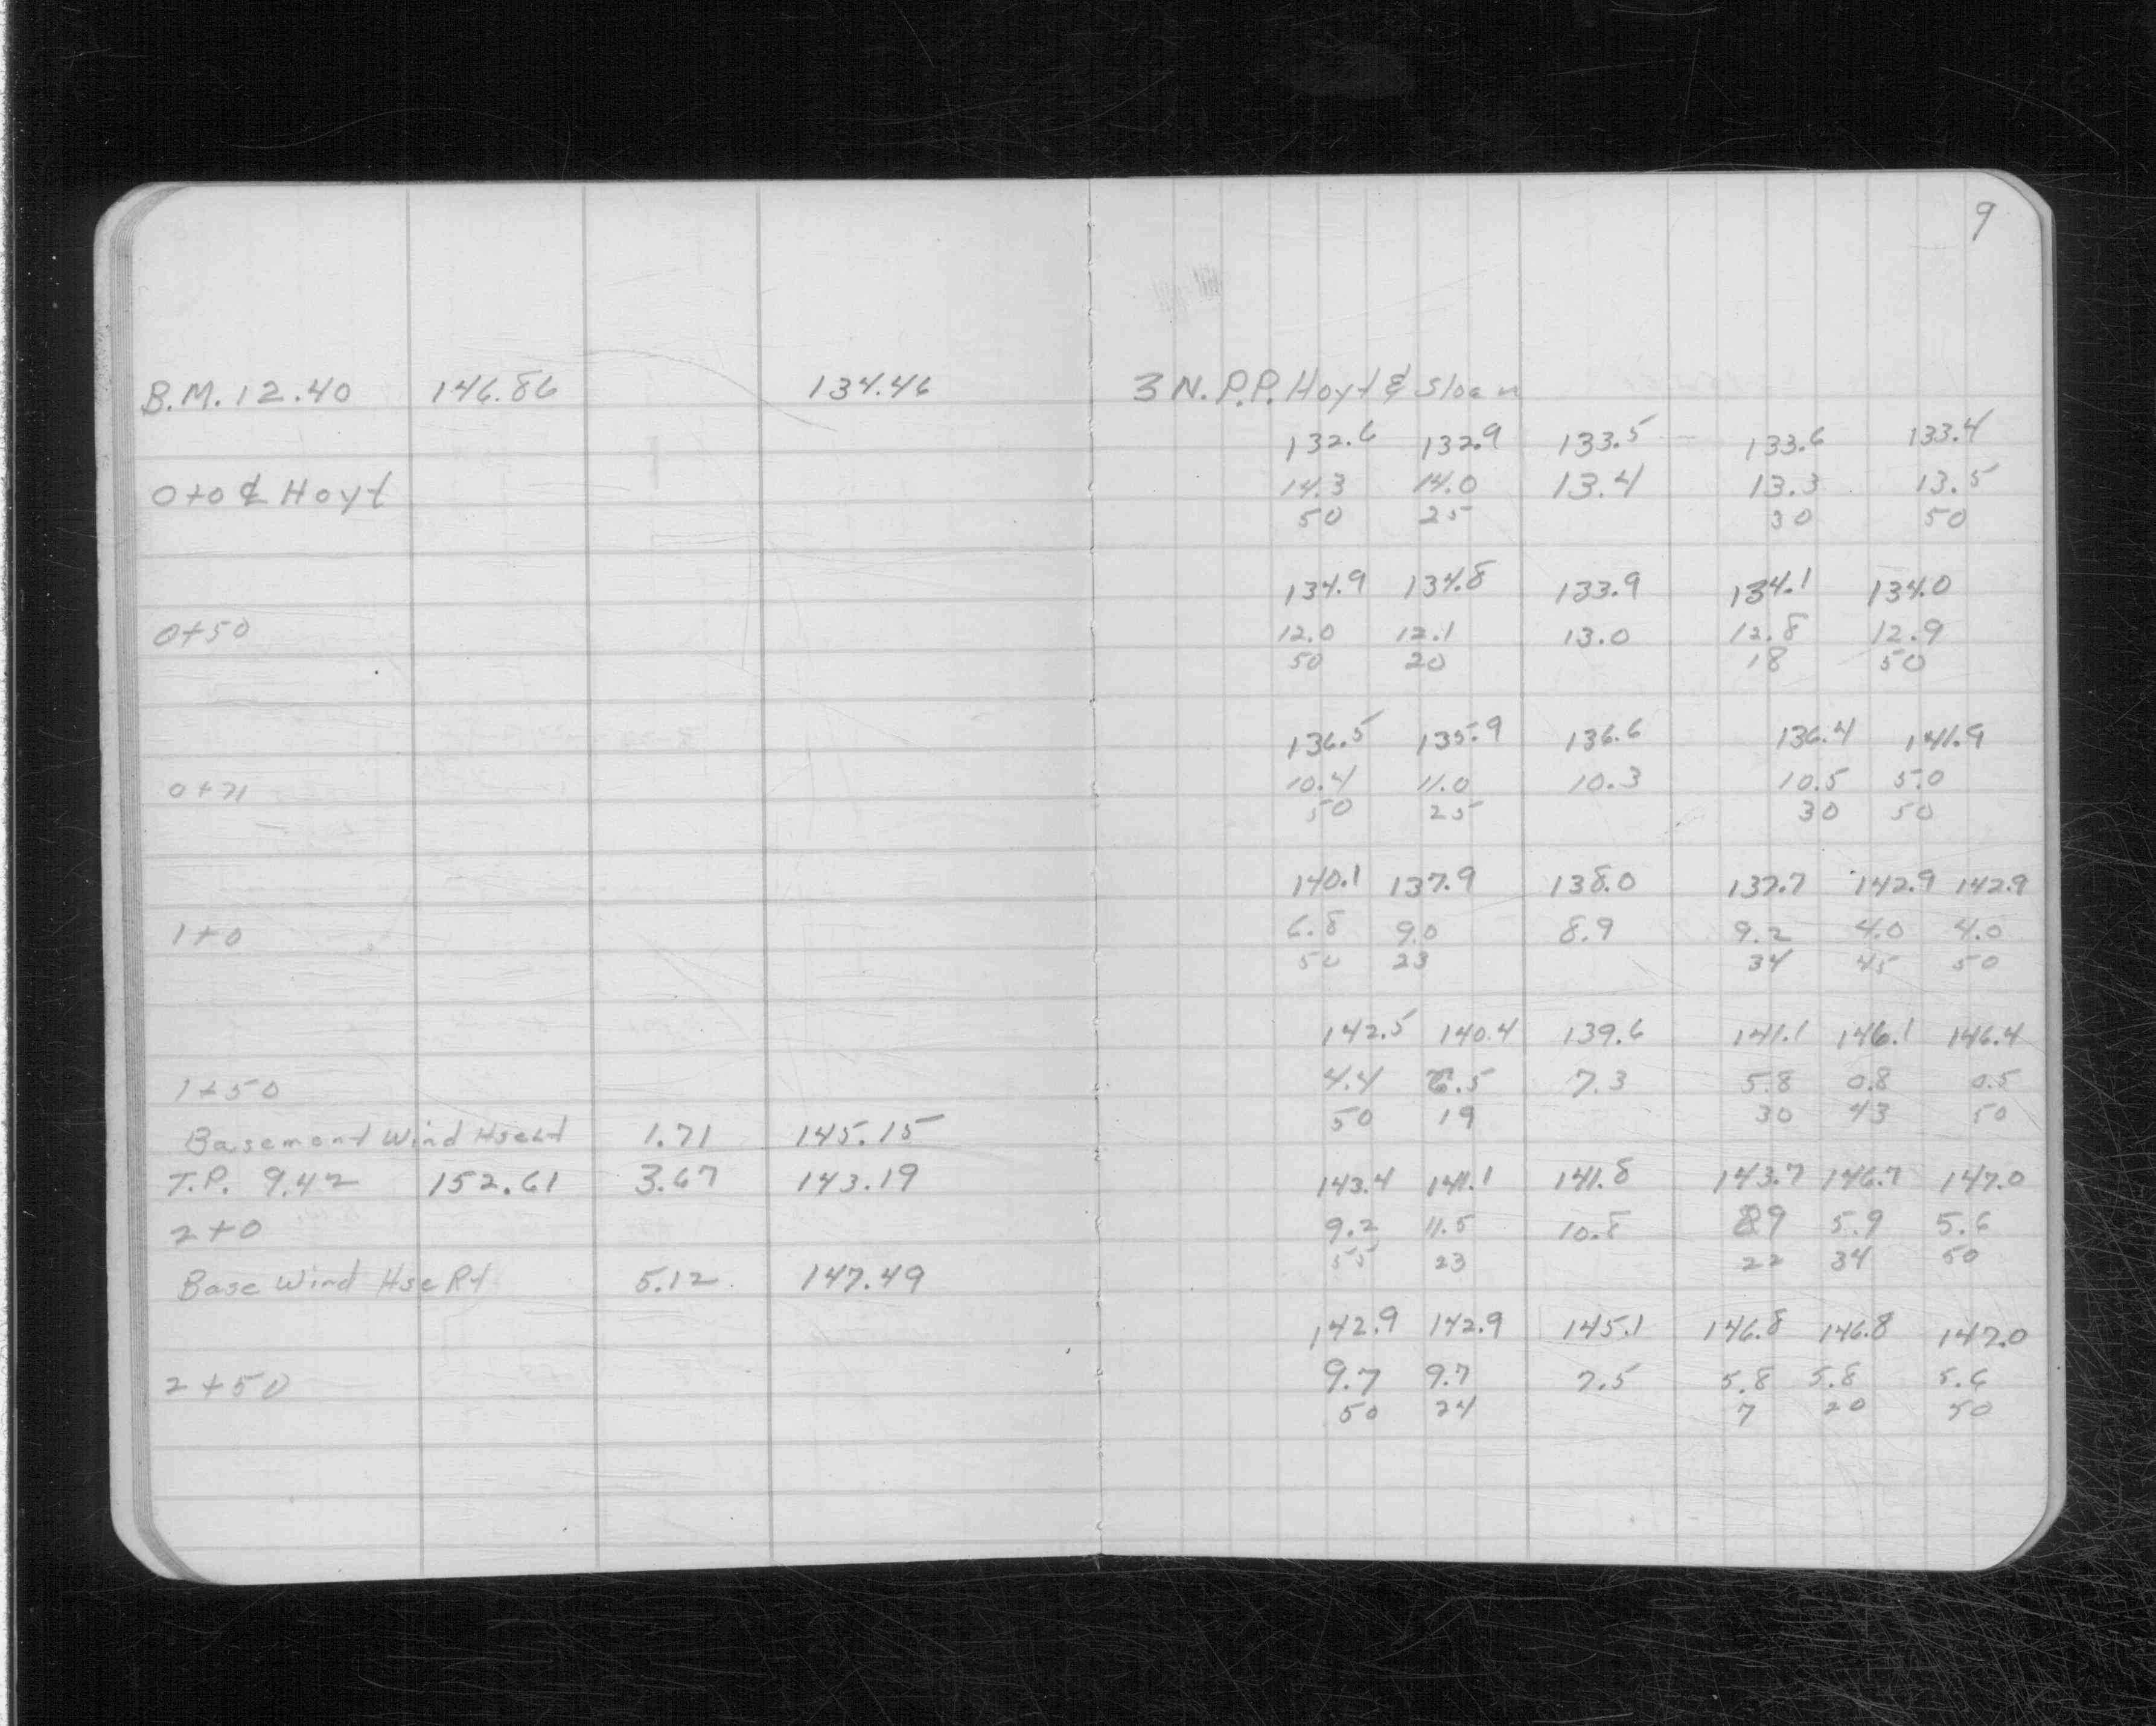 9
B.M. 12.40 146.86 134.46 3 N. P.P. Hoyt & Sloan
132.6 132.9 133.5 133.6 133.4
0+0 ℄ Hoyt 14.3 14.0 13.4 13.3 13.5
50 25 30 50
134.9 134.8 133.9 134.1 134.0
0+50 12.0 12.1 13.0 12.8 12.9
50 20 18 50
136.5 135.9 136.6 136.4 141.9
0+71 10.4 11.0 10.3 10.5 5.0
50 25 30 50
140.1 137.9 138.0 137.7 142.9 142.9
1+0 6.8 9.0 8.9 9.2 4.0 4.0
50 23 34 45 50
142.5 140.4 139.6 141.1 146.1 146.4
1+50 4.4 6.5 7.3 5.8 0.8 0.5
Basement Wind Hse Lt 1.71 145.15 50 19 30 43 50
T.P. 9.42 152.61 3.67 143.19 143.4 141.1 141.8 143.7 146.7 147.0
2+0 9.2 11.5 10.8 89 5.9 5.6
55 23 22 34 50
Base Wind Hse Rt 5.12 147.49
142.9 142.9 145.1 146.8 146.8 147.0
2+50 9.7 9.7 7.5 5.8 5.8 5.6
50 24 7 20 50